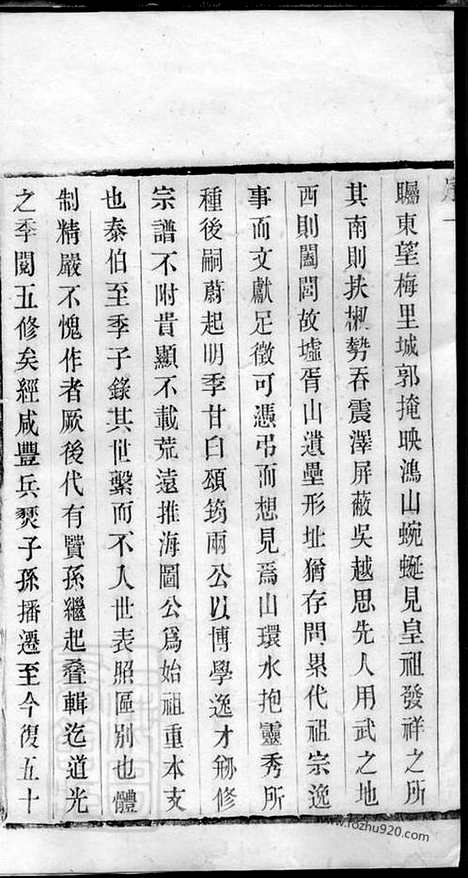 矚東望梅里城郭掩映鴻山蜿蜒見皇祖發祥之所
其南則扶椒勢吞震澤屏蔽吳越思先人用武之地
西則闔閭故墟胥山遺壘形址猶存問累代祖宗逸
事而文獻足徵可憑弔而想見焉山環水抱靈秀所
種後嗣蔚起明季甘白頌筠兩公以博學逸才剏修
宗譜不附貴顯不載荒遠推海圖公爲始祖重本支
也泰伯至季子錄其世繫而不入世表照區別也體
制精嚴不愧作者厥後代有賢孫繼起叠輯迄道光
之季閱五修矣經咸豐兵燹子孫播遷至今復五十
www.fozhu920.com